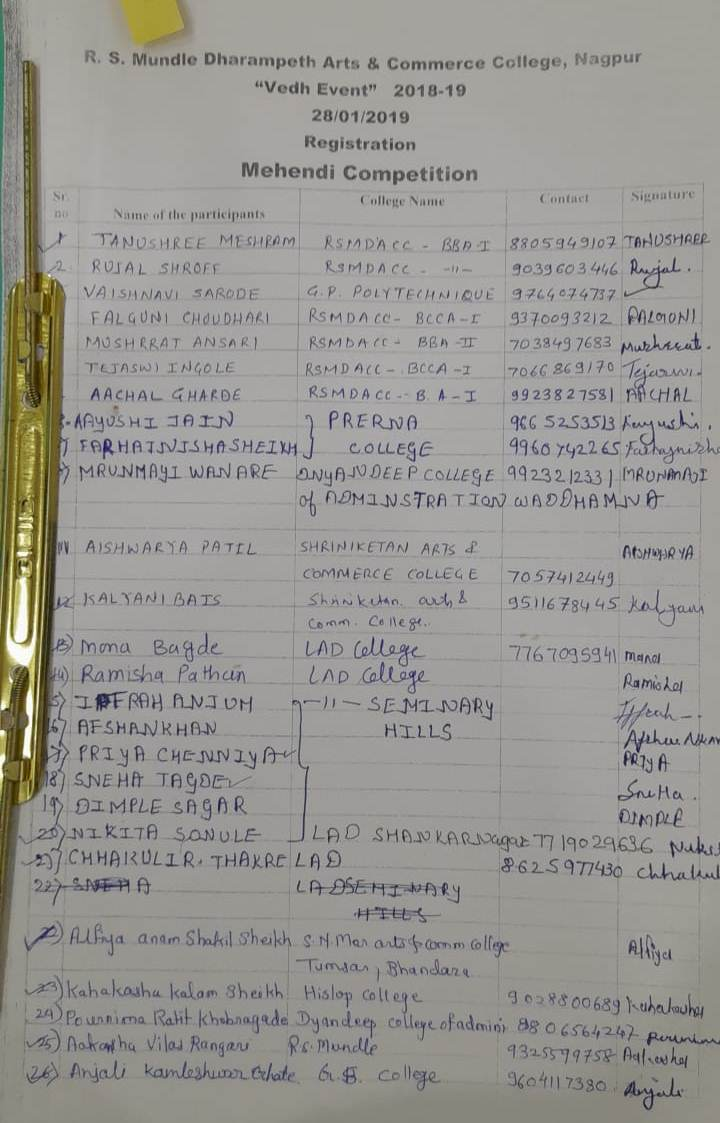 R. S. Mundle Dharampeth Arts & Commerce College, Nagpur
"Vedh Event" 2018-19
28/01/2019
Registration
Mehendi Competition
Sr. no Name of the participants College Name Contact Signature
1 TANUSHREE MESHRAM RSMDACC - BBA-I 8805949107 TANUSHREE
2. RUJAL SHROFF RSMDACC - -11- 9039603446 Rujal.
VAISHNAVI SARODE G.P. POLYTECHNIQUE 9764074737
FALGUNI CHOUDHARI RSMDACC- BCCA-I 9370093212
MUSHRRAT ANSARI RSMDACC- BBA-II 7038497683 Mushrrat.
TEJASWI INGOLE RSMDACC-BCCA-I 7066869170 Tejaswi.
AACHAL GHARDE RSMDACC- B.A-I 9923827581 AACHAL
8. AAYUSHI JAIN } PRERNA 9665253513 Aayushi.
9) FARHAINISHASHEIKH } COLLEGE 9960742265
10) MRUNMAYI WANARE DNYANDEEP COLLEGE 9923212331 MRUNMAYI
of ADMINSTRATION WADDHAMNA
11) AISHWARYA PATIL SHRINIKETAN ARTS & AISHWARYA
COMMERCE COLLEGE 7057412449
12 KALYANI BAIS Shriniketan arts & 9511678445 Kalyani
Comm. College.
13) Mona Bagde LAD College 7767095941 Mona
14) Ramisha Pathan LAD College Ramisha
15) IFFRAH ANJUM -11- SEMINARY Iffrah
16) AFSHANKHAN HILLS
17) PRIYA CHENNIYA PRIYA
18) SNEHA TAGDE SneHa.
19) DIMPLE SAGAR DIMPLE
20) NIKITA SONULE LAD SHANKARNagar 7719029636
21) CHHAKULI R. THAKRE LAD 8625977430 Chhakul
22) SNEHA LAD SEMINARY
HILLS
Alfiya anam Shakil Sheikh S.N. Mor arts & comm College Alfiya
Tumsar, Bhandara
23) Kahakasha Kalam Sheikh Hislop College 9028800689 Kahakasha
24) Pournima Ratit Khobragade Dyandeep college of admini 8806564247
25) Aakansha Vilas Rangari R.S. Mundle 9325579758
26) Anjali Kamleshwar Ghate G.S. College 9604117380 Anjali